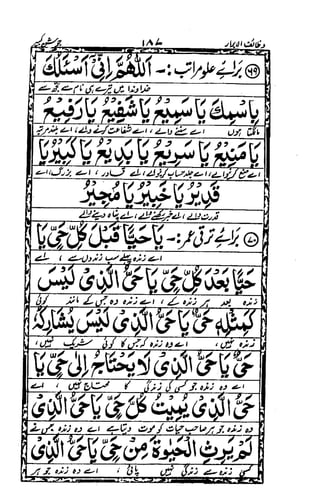 وظائف الابرار ۱۸۷
۶۹ برائے علو مراتب :- اَللّٰهُمَّ اِنِّیْ اَسْئَلُكَ
خداوندا میں تیرے ہی نام سے تجھ سے
بِاسْمِكَ یَا سَمِیْعُ یَا شَفِیْعُ یَا رَفِیْعُ
مانگتا ہوں اے سننے والے، اے شفاعت کرنے والے، اے بلند مرتبہ
یَا مَنِیْعُ یَا سَرِیْعُ یَا بَدِیْعُ یَا كَبِیْرُ یَا
اے جلد حساب اے اے بزرگ، اے
قَدِیْرُ یَا خَبِیْرُ یَا مُجِیْرُ
قدرت والے، اے خبر رکھنے والے، اے پناہ دینے والے
۷۰ برائے ترقی عمر :- یَا حَیًّا قَبْلَ كُلِّ حَیٍّ یَا
زندہ پہلے سب زندوں سے، اے
حَیًّا بَعْدَ كُلِّ حَیٍّ یَا حَیُّ الَّذِیْ لَیْسَ
زندہ بعد ہر زندہ کے، اے زندہ وہ جس کے مانند کوئی
كَمِثْلِهٖ حَیٌّ یَا حَیُّ الَّذِیْ لَیْسَ یُشَارِكُهٗ
زندہ نہیں، اے وہ زندہ کہ جس کا کوئی شریک نہیں
حَیٌّ یَا حَیُّ الَّذِیْ لَا یَحْتَاجُ اِلٰی حَیٍّ یَا
اے وہ زندہ جو کسی کی زندگی کا محتاج نہیں، اے
حَیُّ الَّذِیْ یُمِیْتُ كُلَّ حَیٍّ یَا حَیُّ الَّذِیْ
وہ زندہ جو ہر صاحب حیات کو موت دیتا ہے اے وہ زندہ جس نے
لَمْ یَرِثِ الْحَیٰوةَ مِنْ حَیٍّ یَا حَیُّ الَّذِیْ
کسی زندہ سے زندگی نہیں پائی، اے وہ زندہ جو ہر